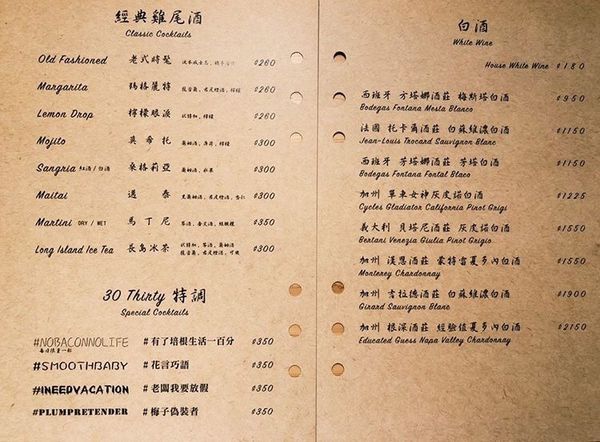 經典雞尾酒
Classic Cocktails
Old Fashioned 老式時髦 $260
Margarita 瑪格麗特 $260
Lemon Drop 檸檬眼淚 $260
Mojito 莫希托 $300
Sangria 紅酒/白酒 桑格莉亞 $300
Maitai 邁泰 $300
Martini DRY / WET 馬丁尼 $350
Long Island Ice Tea 長島冰茶 $300
30 Thirty 特調
Special Cocktails
#NOBACONNOLIFE #有了培根生活一百分 $350
每日限量一郎
#SMOOTHBABY #花言巧語 $350
#INEEDVACATION #老闆我要放假 $350
#PLUMPRETENDER #梅子偽裝者 $350
白酒
White Wine
House White Wine $180
西班牙 芳塔娜酒莊 梅斯塔白酒 $950
Bodegas Fontana Mesta Blanco
法國 托卡爾酒莊 白蘇維濃白酒 $1150
Jean-Louis Trocard Sauvignon Blanc
西班牙 芳塔娜酒莊 芳塔白酒 $1150
Bodegas Fontana Fontal Blaco
加州 單車女神灰皮諾白酒 $1225
Cycles Gladiator California Pinot Grigi
義大利 貝塔尼酒莊 灰皮諾白酒 $1550
Bertani Venezia Giulia Pinot Grigio
加州 漢恩酒莊 蒙特雷夏多內白酒 $1550
Monterey Chardonnay
加州 吉拉德酒莊 白蘇維濃白酒 $1900
Girard Sauvignon Blanc
加州 根深酒莊 經驗值夏多內白酒 $2150
Educated Guess Napa Valley Chardonnay